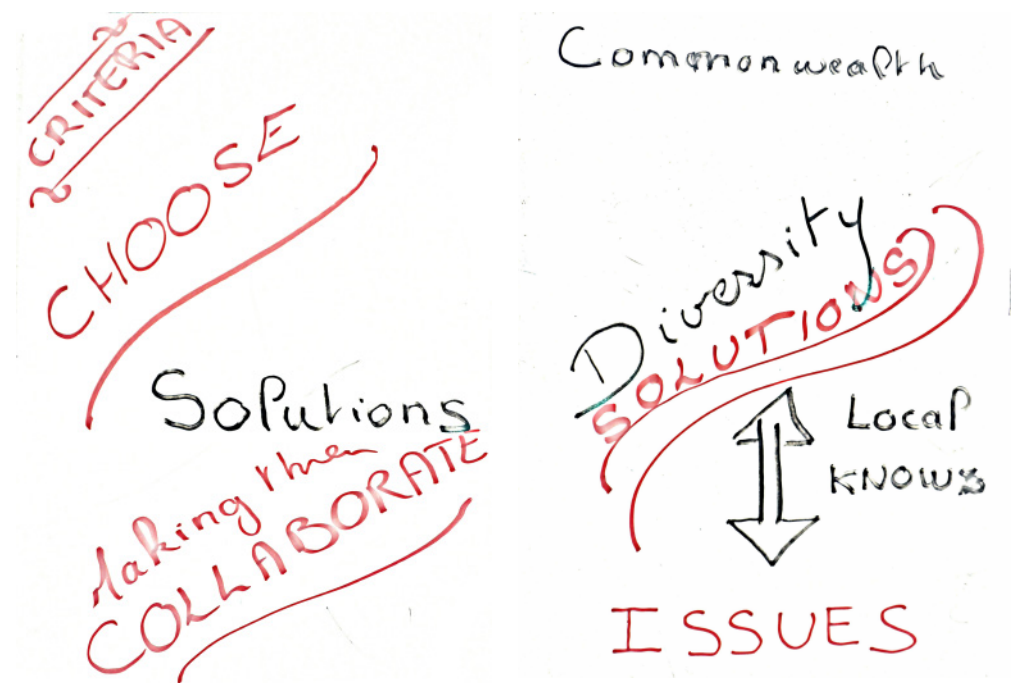 CRITERIA
CHOOSE
Solutions
Making them
COLLABORATE
Commonwealth
Diversity
SOLUTIONS
Local
KNOWS
ISSUES